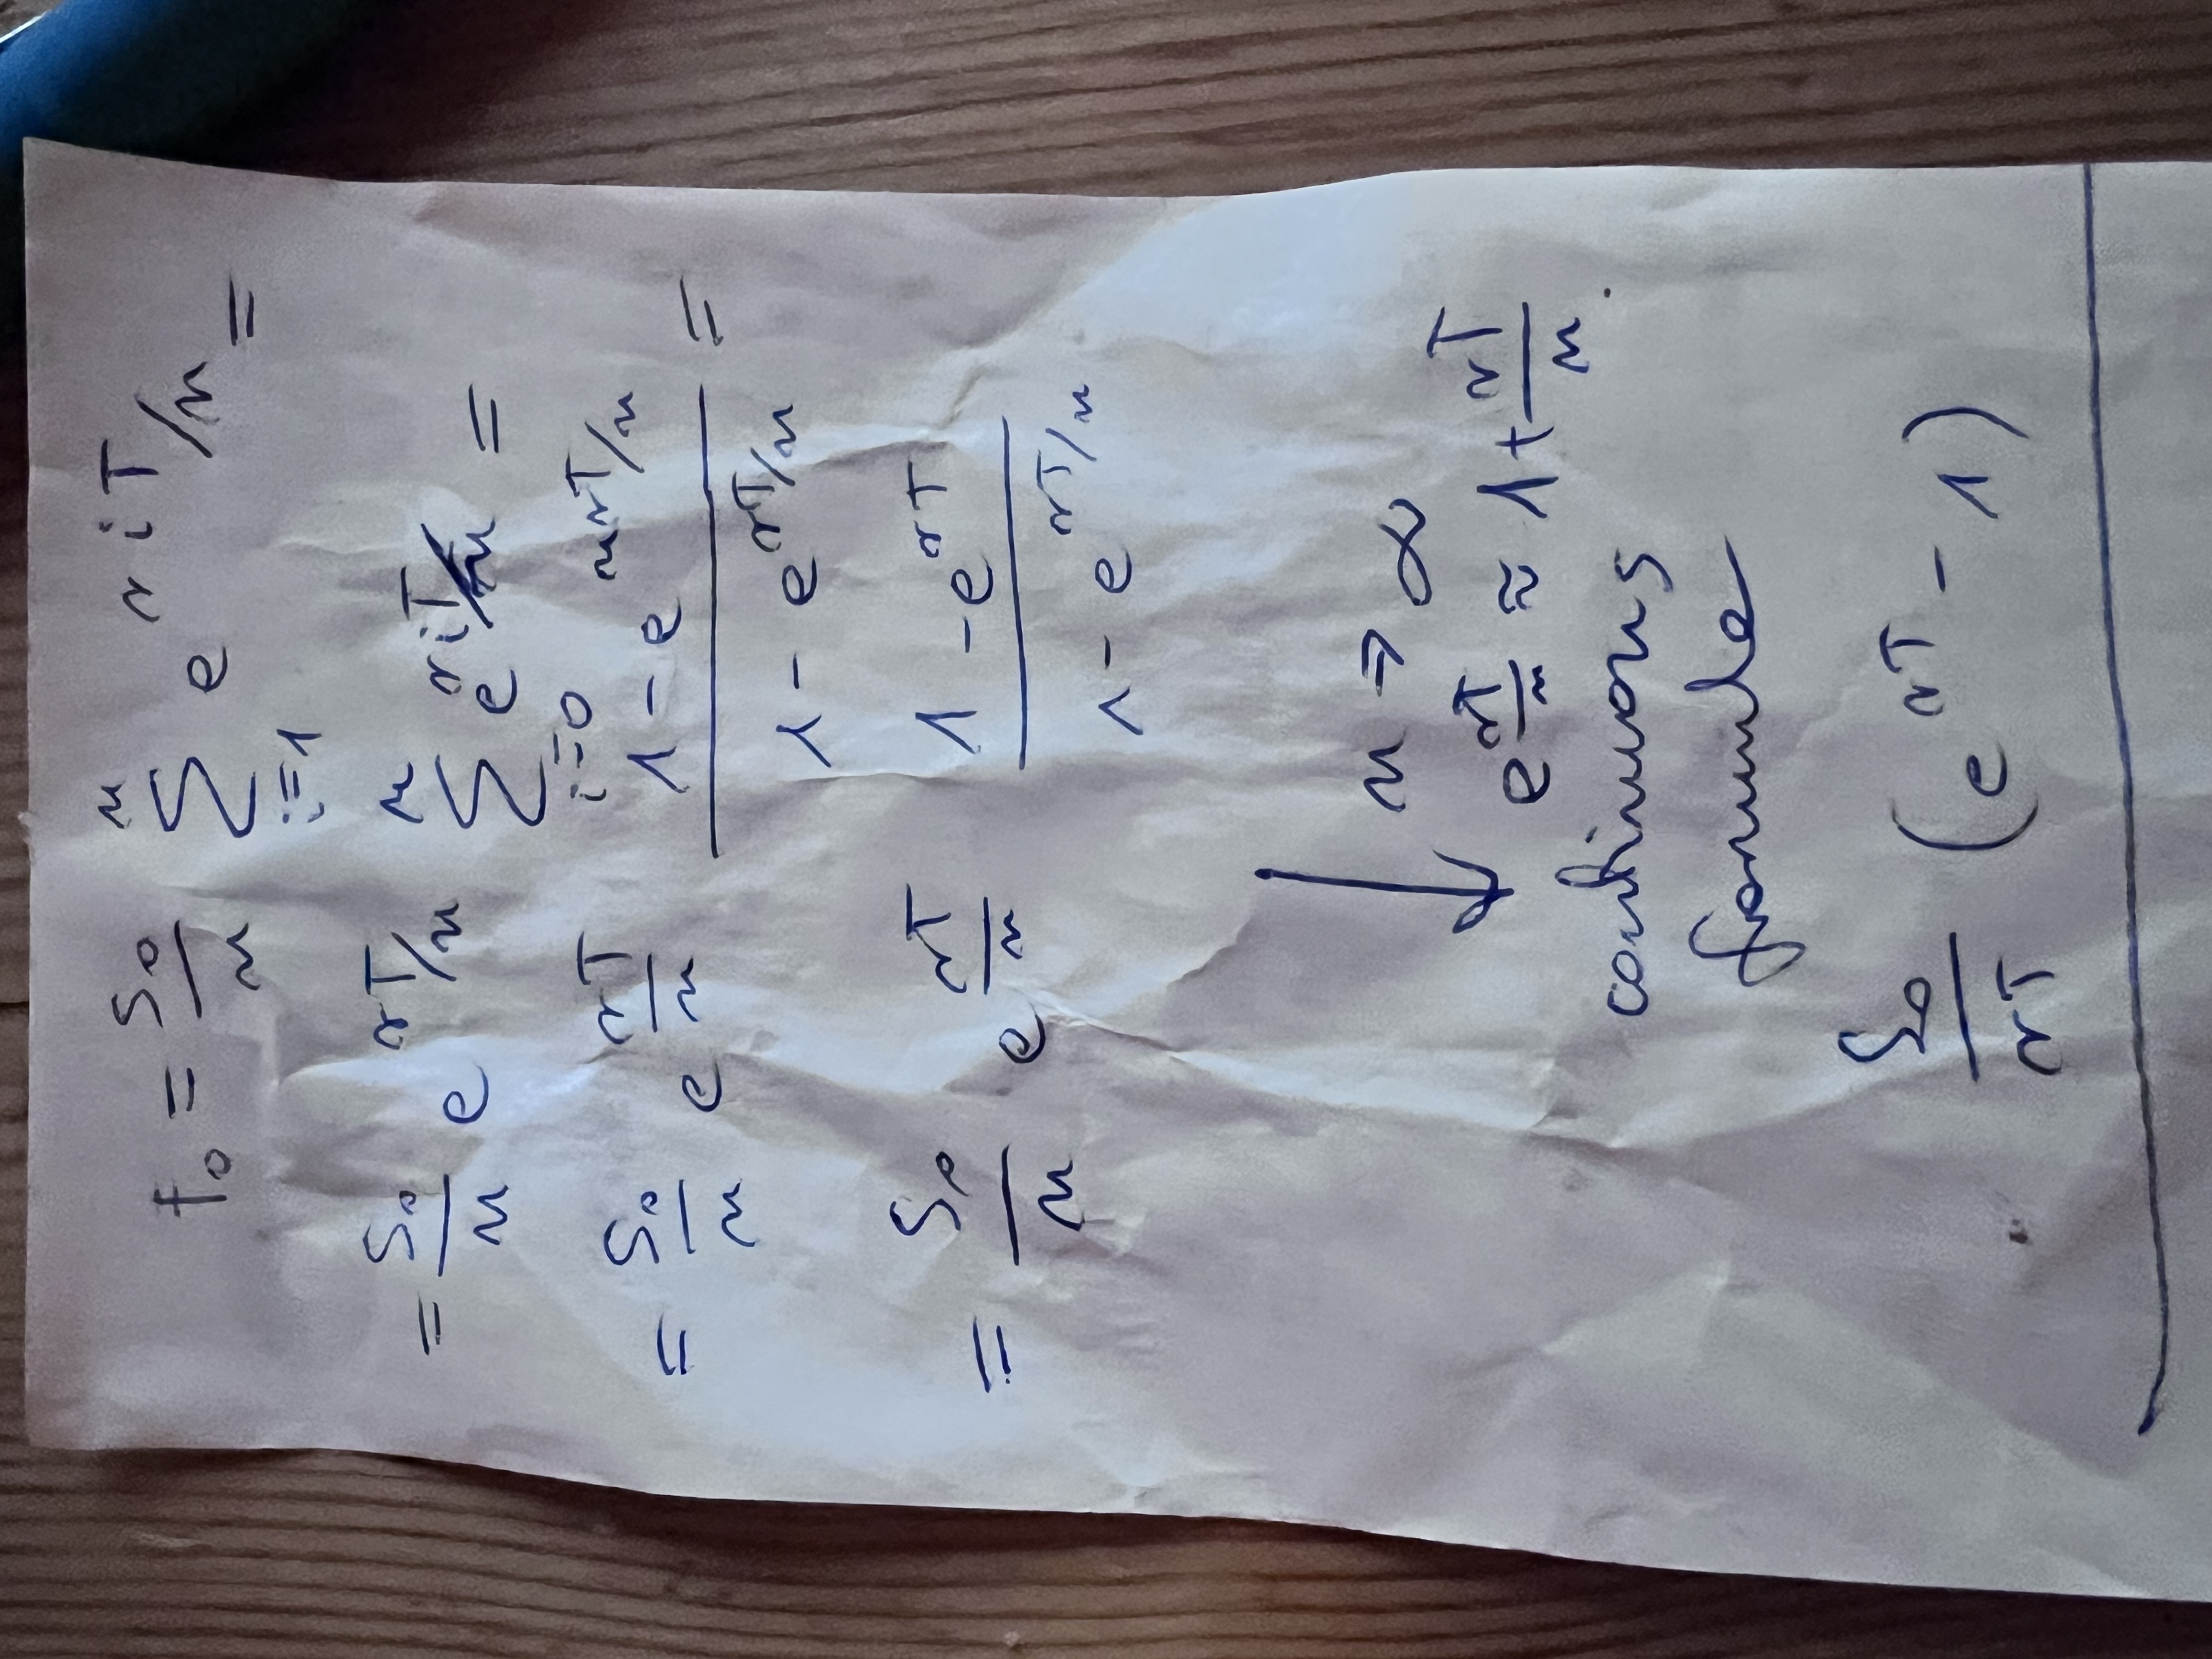 f₀ = S₀/n ∑_{i=1}^{n} e^{r i T/n} =
= S₀/n e^{rT/n} ∑_{i=0}^{n} e^{r i T/n} =
= S₀/n e^{rT/n} (1 - e^{n rT/n})/(1 - e^{rT/n}) =
= S₀/n e^{rT/n} (1 - e^{rT})/(1 - e^{rT/n})
↓ n ⇒ ∞
e^{rT/n} ≈ 1 + rT/n.
continuous
formula
S₀/rT (e^{rT} - 1)